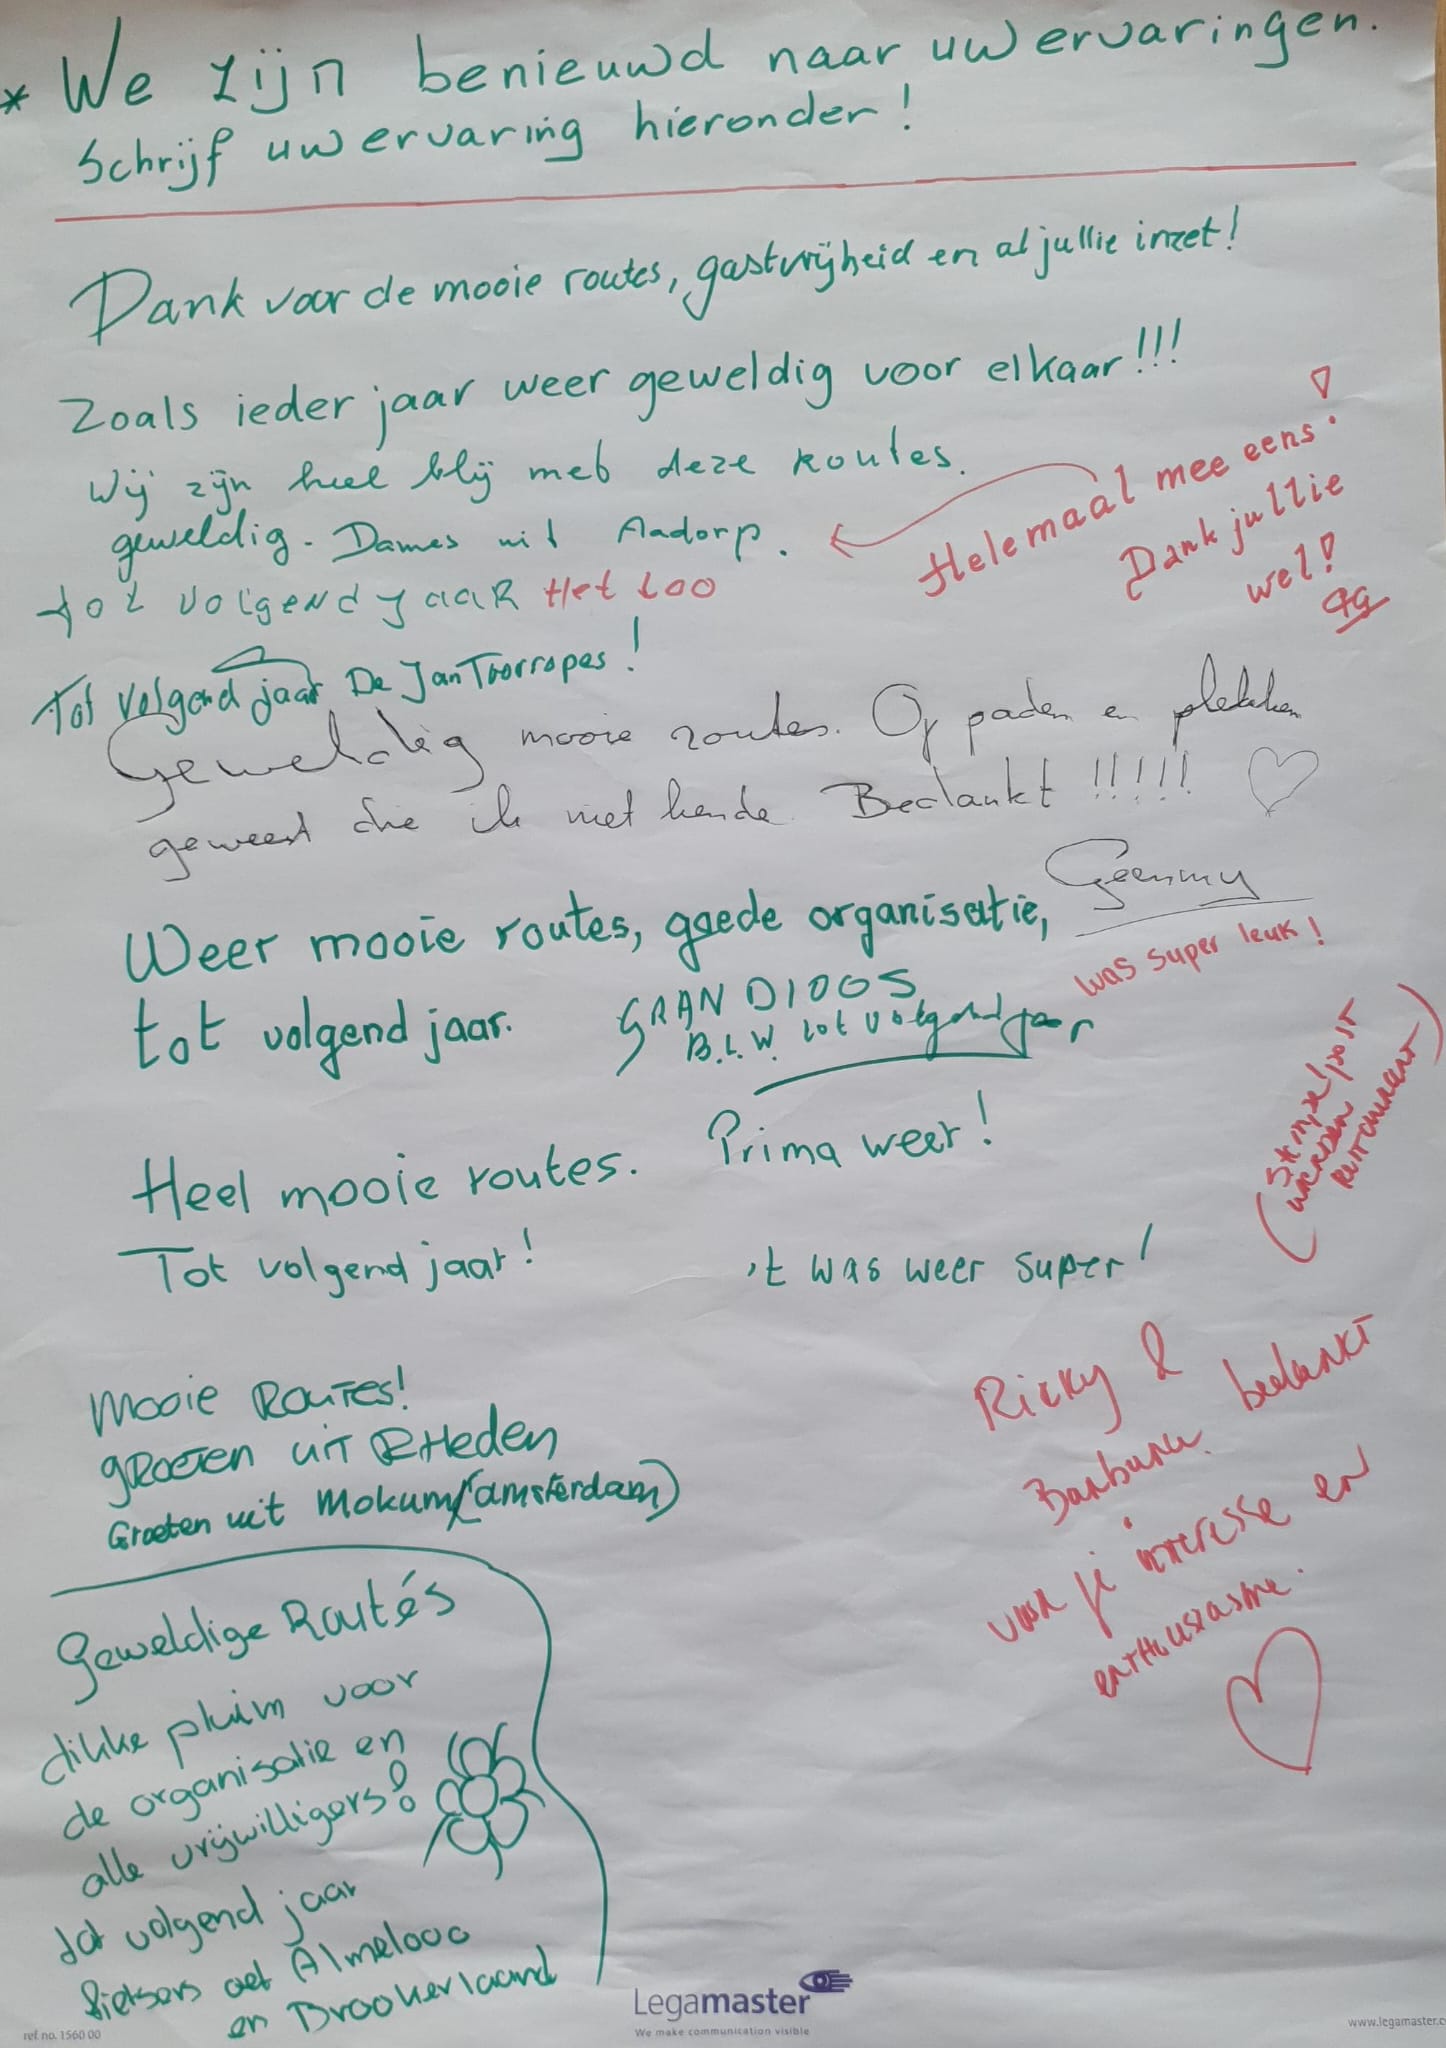 * We zijn benieuwd naar uw ervaringen.
Schrijf uw ervaring hieronder!
Dank voor de mooie routes, gastvrijheid en al jullie inzet!
Zoals ieder jaar weer geweldig voor elkaar!!!
Wij zijn heel blij met deze routes.
geweldig. Dames uit Aadorp.
Helemaal mee eens!
Dank jullie
wel!
tot volgend jaar Het Loo
Tot volgend jaar De Jan Toorropes!
Geweldig mooie routes. Op paden en plekken
geweest die ik niet kende. Bedankt !!!!!
Geenmy
Weer mooie routes, goede organisatie,
tot volgend jaar.
was super leuk!
GRANDIOOS
B.L.W. tot volgend jaar
Heel mooie routes.
Tot volgend jaar!
Prima weer!
't was weer super!
Mooie Routes!
groeten uit Rheden
Groeten uit Mokum (amsterdam)
Ricky &
Barbara bedankt
voor je interesse en
enthousiasme.
Geweldige Routés
dikke pluim voor
de organisatie en
alle vrijwilligers!
tot volgend jaar
fietsers oet Almelooo
en Brookerlaand
Legamaster
We make communication visible
ref. no. 1560 00
www.legamaster.c